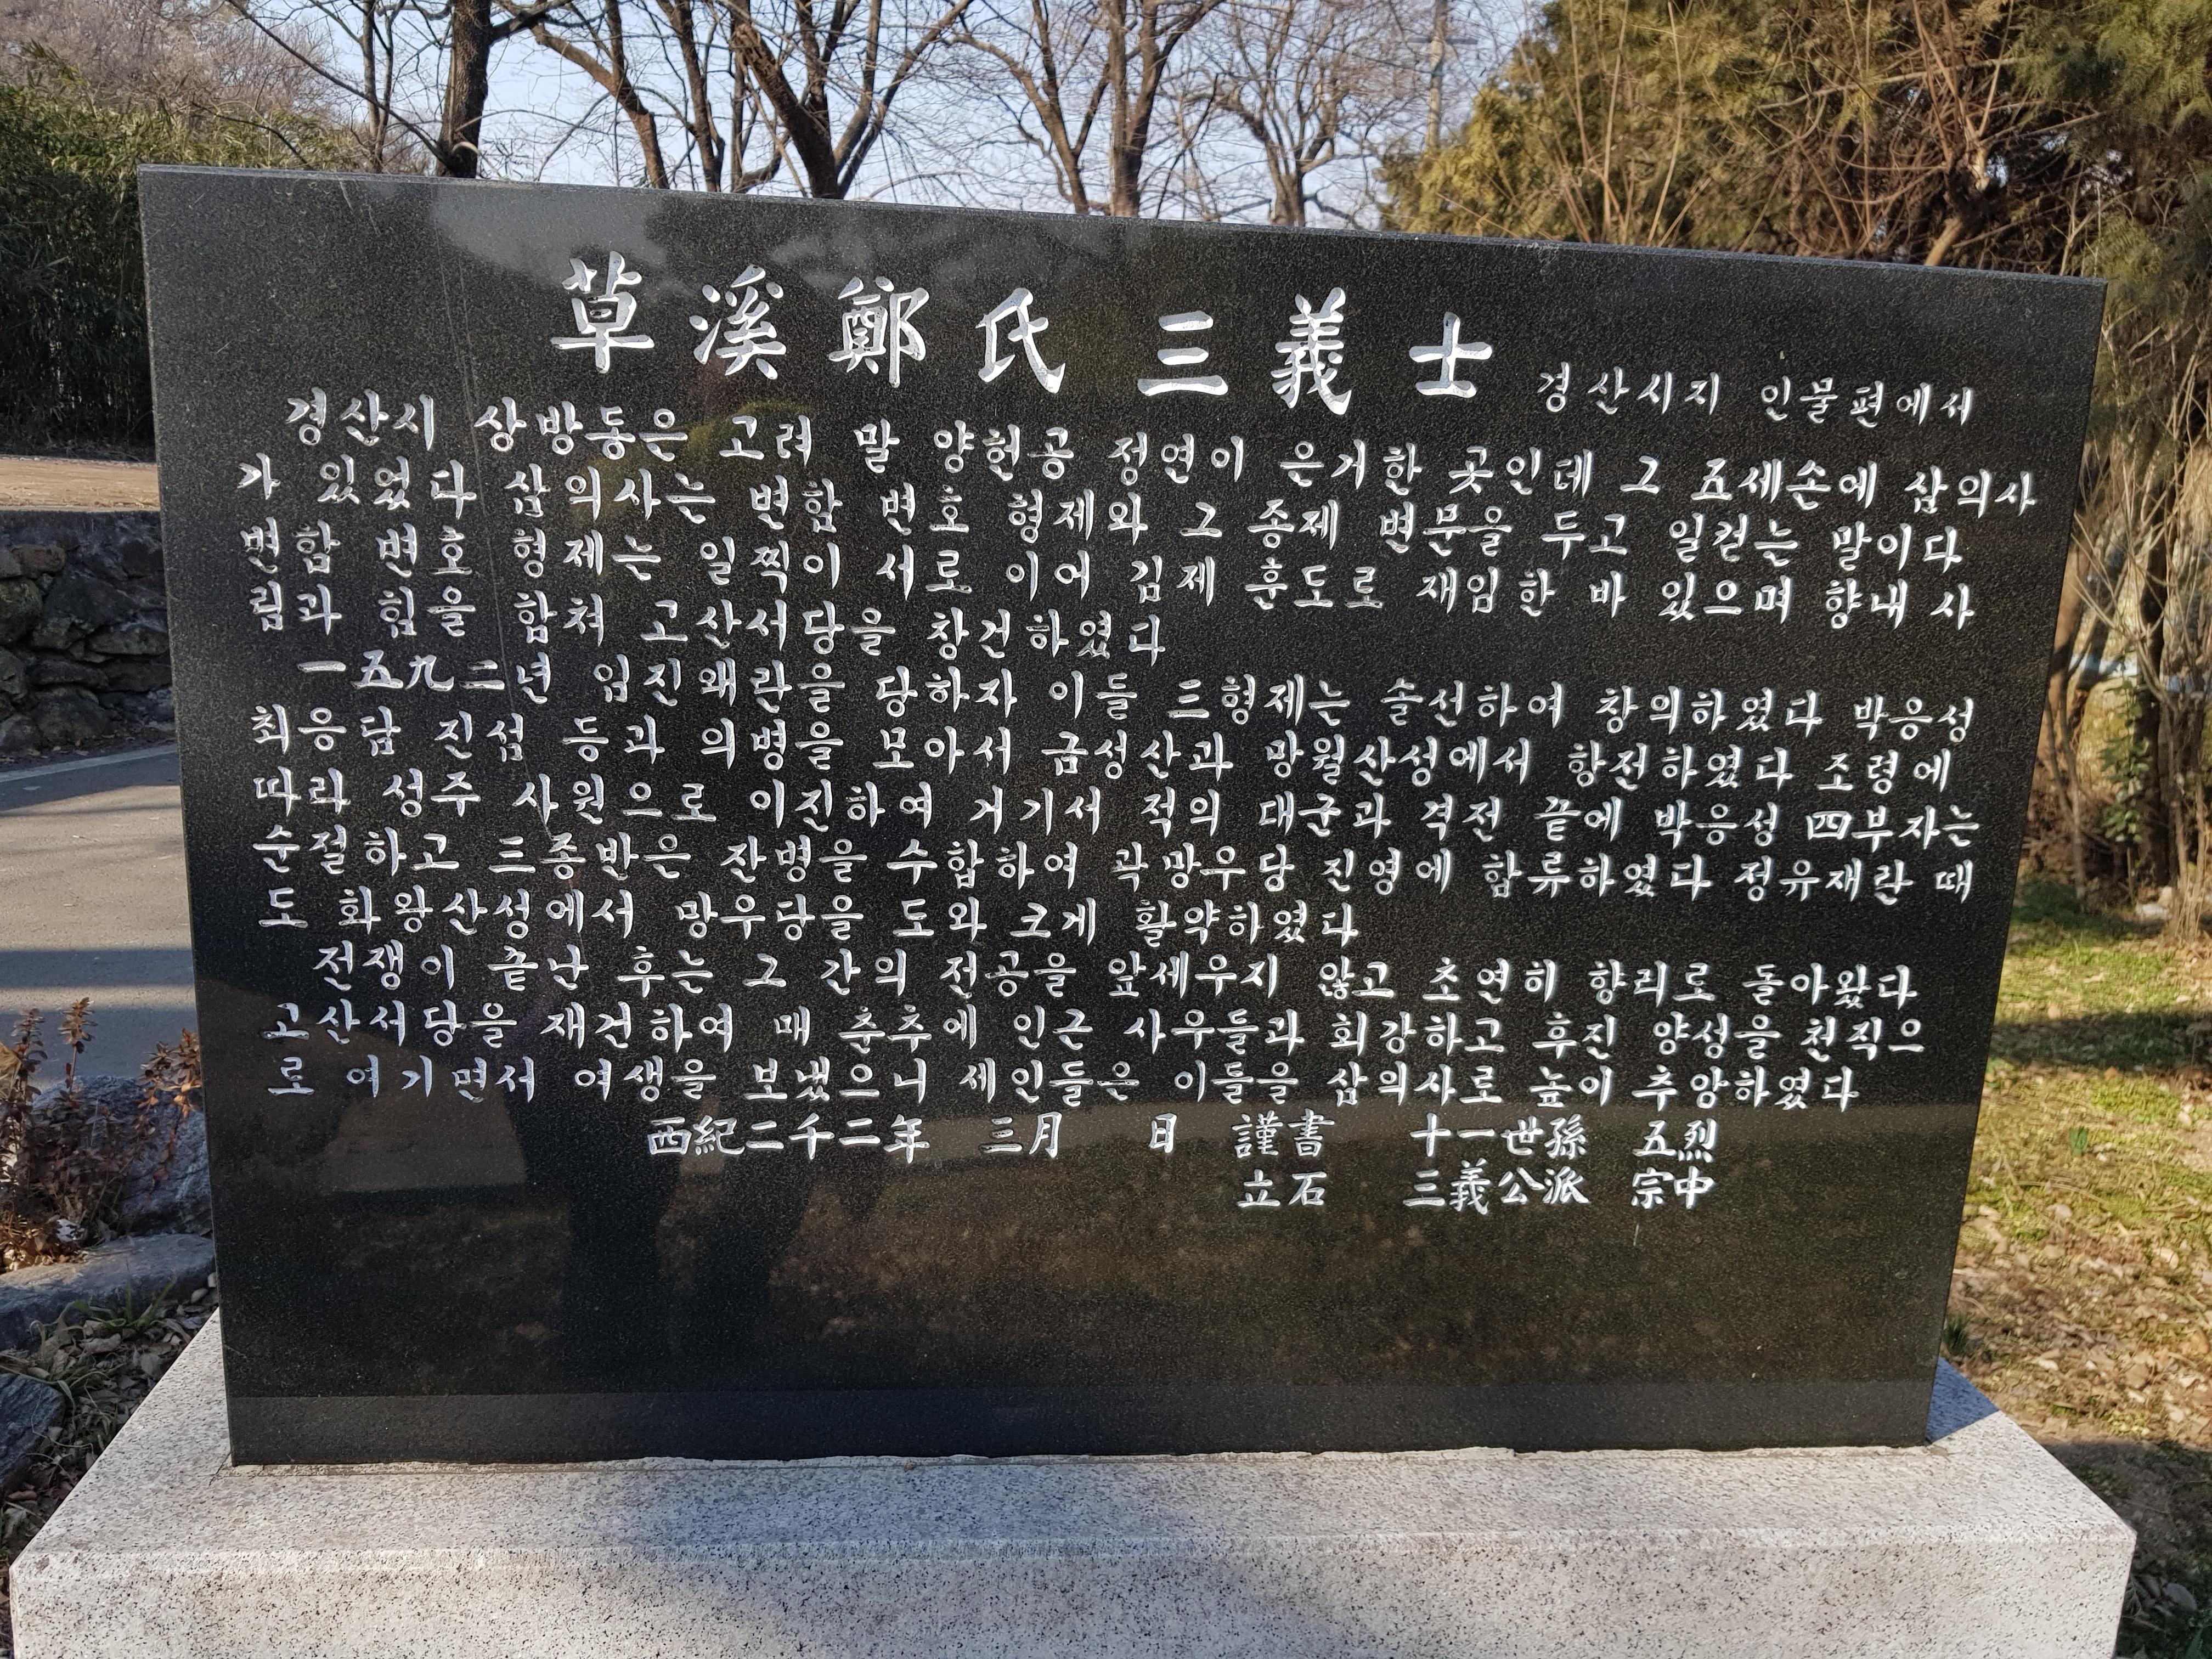 草溪鄭氏 三義士 경산시지 인물편에서
경산시 상방동은 고려 말 양헌공 정연이 은거한 곳인데 그 五세손에 삼의사
가 있었다 삼의사는 변함 변호 형제와 그 종제 변문을 두고 일컫는 말이다
변함 변호 형제는 일찍이 서로 이어 김제 훈도로 재임한 바 있으며 향내 사
림과 힘을 합쳐 고산서당을 창건하였다
一五九二년 임진왜란을 당하자 이들 三형제는 솔선하여 창의하였다 박응성
최응담 진섬 등과 의병을 모아서 금성산과 망월산성에서 항전하였다 조령에
따라 성주 사원으로 이진하여 거기서 적의 대군과 격전 끝에 박응성 四부자는
순절하고 三종반은 잔병을 수합하여 곽망우당 진영에 합류하였다 정유재란 때
도 화왕산성에서 망우당을 도와 크게 활약하였다
전쟁이 끝난 후는 그 간의 전공을 앞세우지 않고 초연히 향리로 돌아왔다
고산서당을 재건하여 매 춘추에 인근 사우들과 회강하고 후진 양성을 천직으
로 여기면서 여생을 보냈으니 세인들은 이들을 삼의사로 높이 추앙하였다
西紀二千二年 三月 日 謹書 十一世孫 五烈
立石 三義公派 宗中